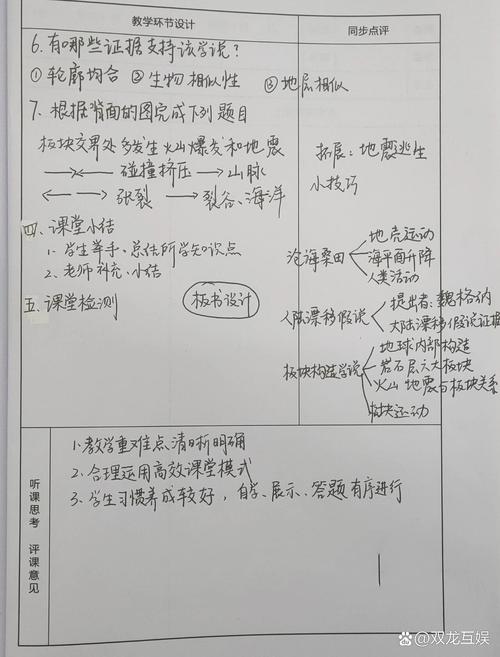 教学环节设计
同步点评
6.有哪些证据支持该学说?
①轮廓吻合 ②生物相似性 ③地层相似
7.根据背面的图完成下列题目
板块交界处多发生火山爆发和地震
→← 碰撞挤压 → 山脉
← → 张裂 → 裂谷、海洋
拓展:地震逃生
小技巧
四、课堂小结
1.学生举手、总结所学知识点
2.老师补充、小结
五、课堂检测
板书设计
沧海桑田
地壳运动
海平面升降
人类活动
大陆漂移假说
提出者:魏格纳
大陆漂移假说证据
板块构造学说
地球内部构造
岩石层六大板块
火山 地震与板块关系
板块运动
听课思考 评课意见
1.教学重难点清晰明确
2.合理运用高效课堂模式
3.学生习惯养成较好,自学、展示、答题有序进行
双龙互娱